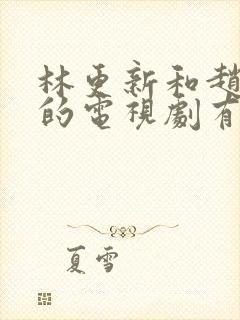 林更新和趙
的電視劇有
夏雪